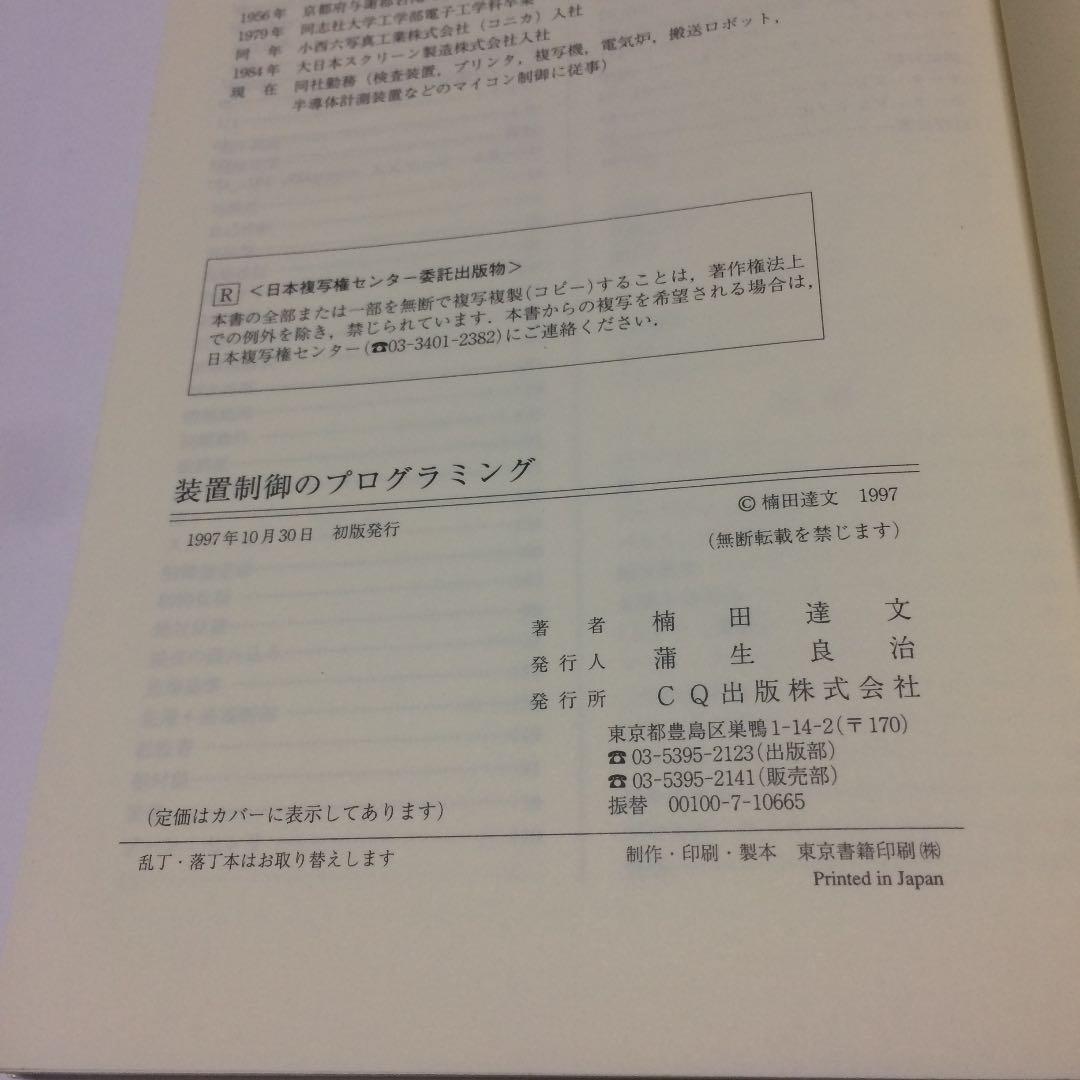 1956年 京都府与謝郡
1979年 同志社大学工学部電子工学科卒業
同 年 小西六写真工業株式会社(コニカ)入社
1984年 大日本スクリーン製造株式会社入社
現 在 同社勤務(検査装置,プリンタ,複写機,電気炉,搬送ロボット,
半導体計測装置などのマイコン制御に従事)
R <日本複写権センター委託出版物>
本書の全部または一部を無断で複写複製(コピー)することは,著作権法上
での例外を除き,禁じられています.本書からの複写を希望される場合は,
日本複写権センター(☎03-3401-2382)にご連絡ください.
装置制御のプログラミング
1997年10月30日 初版発行
© 楠田達文 1997
(無断転載を禁じます)
著 者 楠 田 達 文
発行人 蒲 生 良 治
発行所 CQ出版株式会社
東京都豊島区巣鴨1-14-2(〒170)
☎03-5395-2123(出版部)
☎03-5395-2141(販売部)
振替 00100-7-10665
(定価はカバーに表示してあります)
乱丁・落丁本はお取り替えします
制作・印刷・製本 東京書籍印刷㈱
Printed in Japan